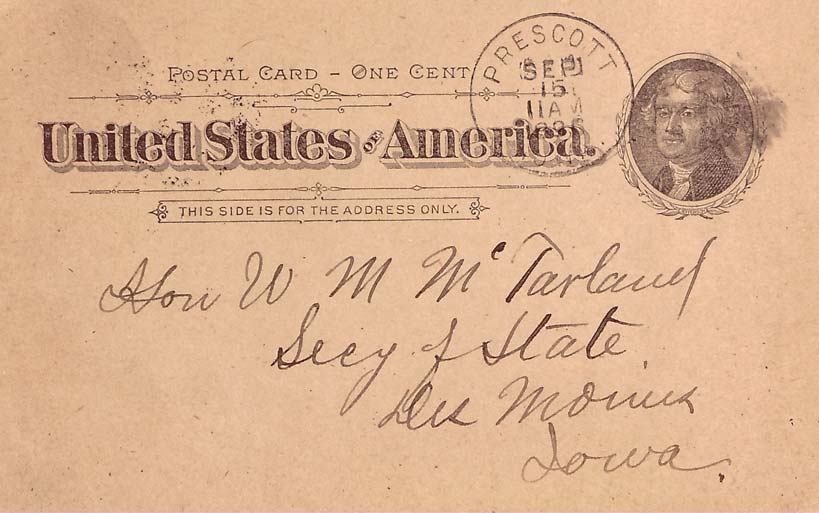 POSTAL CARD – ONE CENT
United States OF America.
THIS SIDE IS FOR THE ADDRESS ONLY.
PRESCOTT
SEP
15
11 AM
Hon W M McFarland
Secy of State
Des Moines
Iowa.